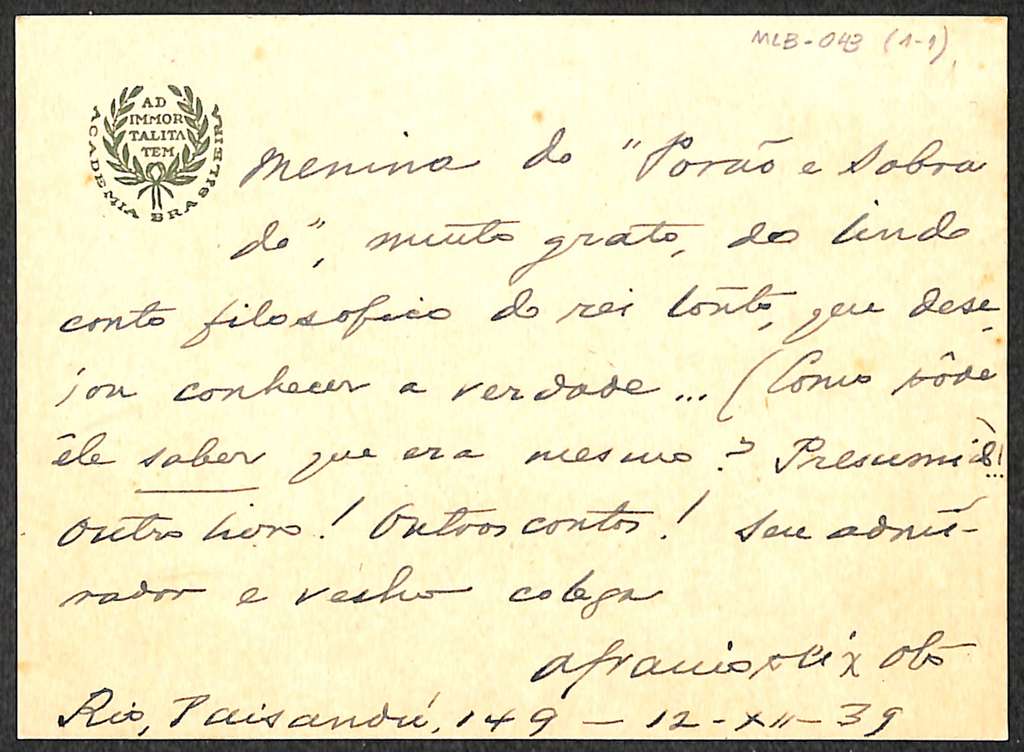 MLB-043 (1-1)
AD
IMMOR
TALITA
TEM
ACADEMIA BRASILEIRA
Menina do "Porão e Sobra
do", muito grato, do lindo
conto filosofico do rei tonto, que dese
jou conhecer a verdade... (Como pôde
êle saber que era mesmo? Presumiu!...)
Outro livro! Outros contos! Seu admi-
rador e velho colega
Afranio Peixoto
Rio, Paisandú, 149 - 12-XII-39